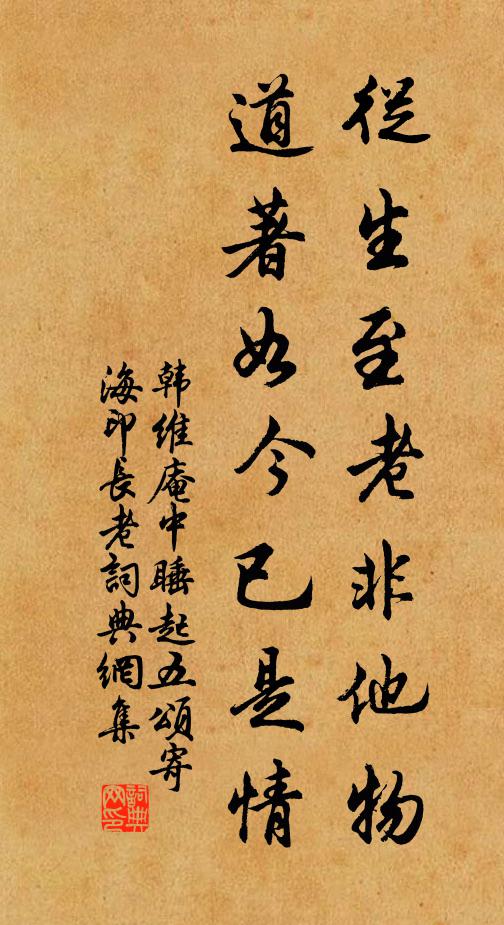 從生至老非他物
道著如今已是情
韩維庵中睡起五頌寄
海印長老詞典網集
詞典
网印